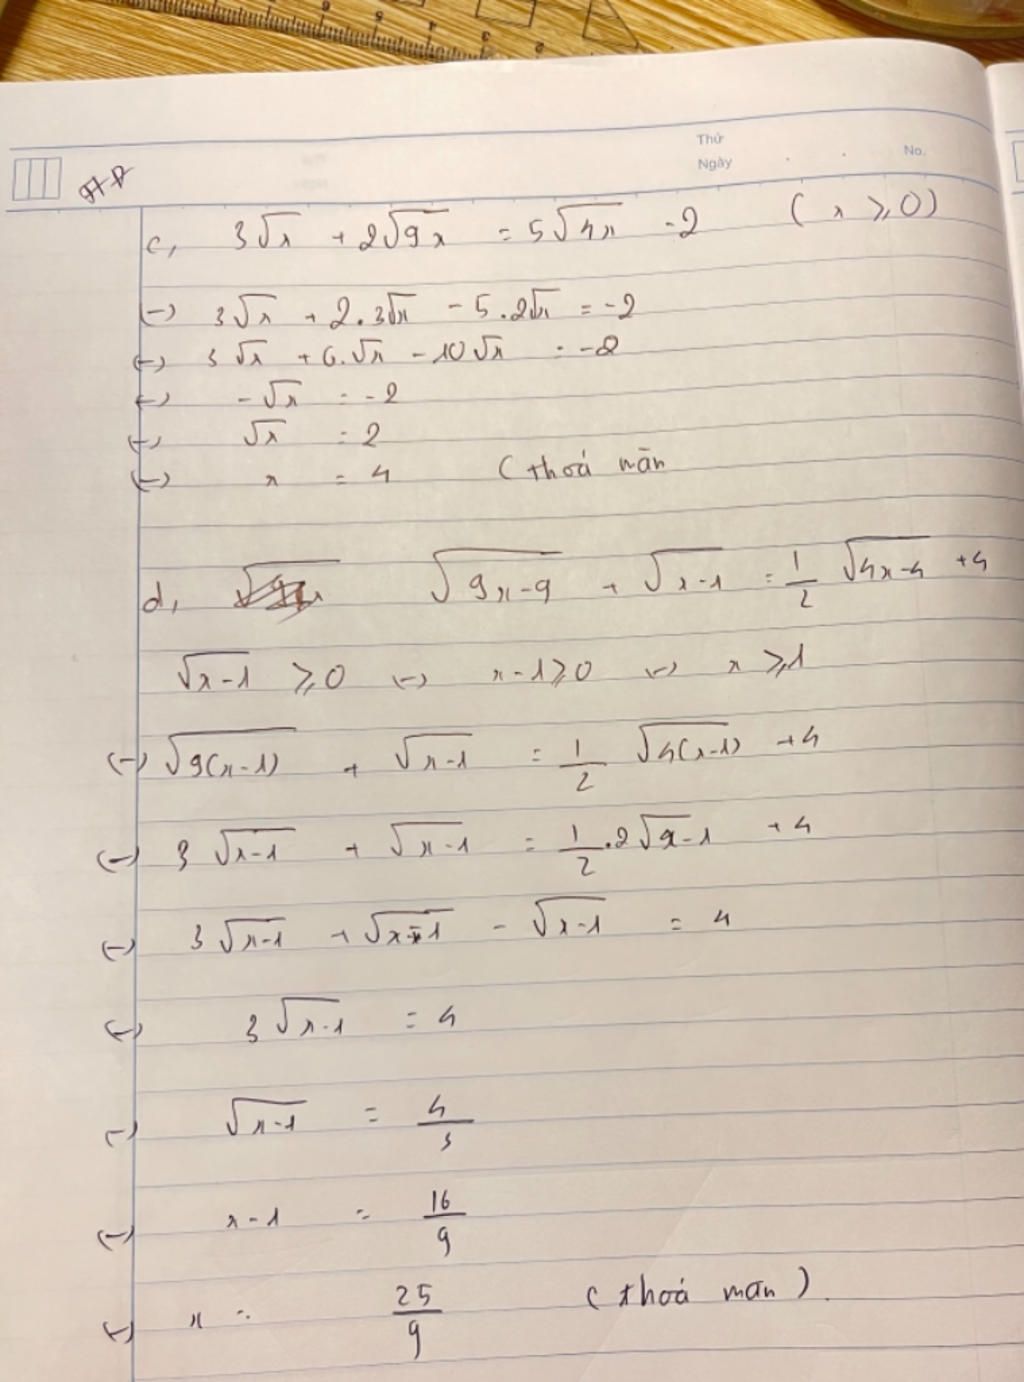 Thứ
Ngày No.
c, 3√x + 2√9x = 5√4x - 2 (x ⩾ 0)
(-) 3√x + 2.3√x - 5.2√x = -2
(-) 3√x + 6.√x - 10√x = -2
(-) -√x = -2
(-) √x = 2
(-) x = 4 (thoả mãn
d, √9x-9 + √x-1 = 1/2 √4x-4 +4
√x-1 ⩾ 0 (-) x-1 ⩾ 0 (-) x ⩾ 1
(-) √9(x-1) + √x-1 = 1/2 √4(x-1) +4
(-) 3√x-1 + √x-1 = 1/2 .2√x-1 +4
(-) 3√x-1 + √x-1 - √x-1 = 4
(-) 3√x-1 = 4
(-) √x-1 = 4/3
(-) x-1 = 16/9
(-) x = 25/9 (thoả mãn).